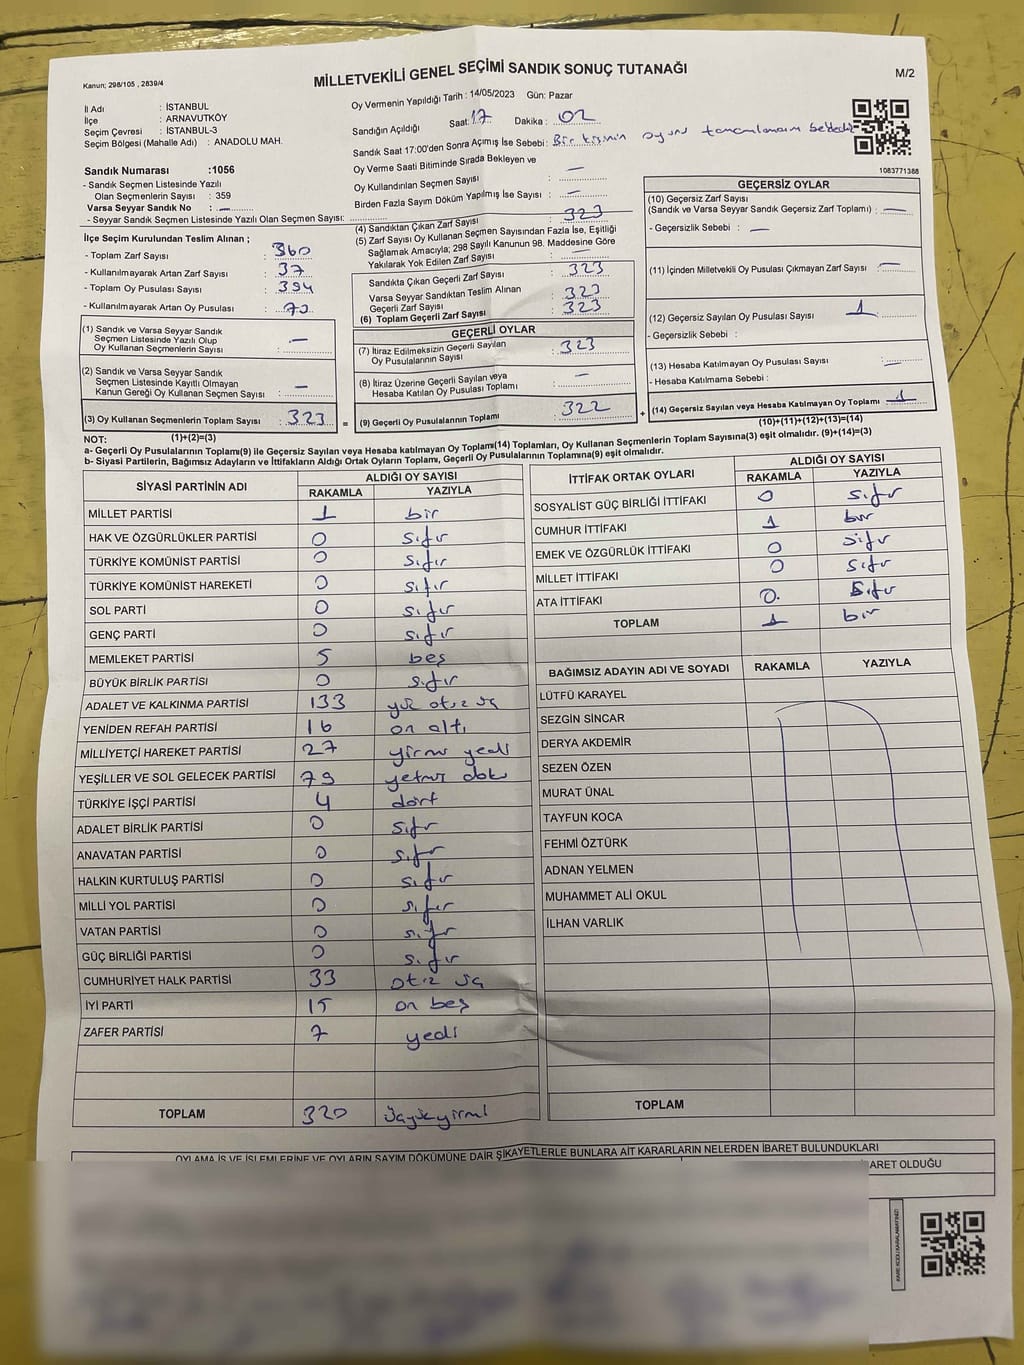 Kanun; 298/105 , 2839/4
MİLLETVEKİLİ GENEL SEÇİMİ SANDIK SONUÇ TUTANAĞI
M/2
İl Adı : İSTANBUL
İlçe : ARNAVUTKÖY
Seçim Çevresi : İSTANBUL-3
Seçim Bölgesi (Mahalle Adı) : ANADOLU MAH.
Oy Vermenin Yapıldığı Tarih : 14/05/2023 Gün: Pazar
Sandığın Açıldığı Saat: 17 Dakika : 02
Sandık Saat 17:00'den Sonra Açılmış İse Sebebi: Bir kişinin oyunu tamamlaması
Oy Verme Saati Bitiminde Sırada Bekleyen ve
Oy Kullandırılan Seçmen Sayısı : —
Birden Fazla Sayım Döküm Yapılmış İse Sayısı : —
1083771388
Sandık Numarası :1056
- Sandık Seçmen Listesinde Yazılı
Olan Seçmenlerin Sayısı : 359
Varsa Seyyar Sandık No : —
- Seyyar Sandık Seçmen Listesinde Yazılı Olan Seçmen Sayısı:
İlçe Seçim Kurulundan Teslim Alınan ;
- Toplam Zarf Sayısı : 360
- Kullanılmayarak Artan Zarf Sayısı : 37
- Toplam Oy Pusulası Sayısı : 394
- Kullanılmayarak Artan Oy Pusulası :
(1) Sandık ve Varsa Seyyar Sandık
Seçmen Listesinde Yazılı Olup
Oy Kullanan Seçmenlerin Sayısı : —
(2) Sandık ve Varsa Seyyar Sandık
Seçmen Listesinde Kayıtlı Olmayan
Kanun Gereği Oy Kullanan Seçmen Sayısı : —
(3) Oy Kullanan Seçmenlerin Toplam Sayısı : 323
(1)+(2)=(3)
(4) Sandıktan Çıkan Zarf Sayısı : 323
(5) Zarf Sayısı Oy Kullanan Seçmen Sayısından Fazla İse, Eşitliği
Sağlamak Amacıyla; 298 Sayılı Kanunun 98. Maddesine Göre
Yakılarak Yok Edilen Zarf Sayısı : —
Sandıkta Çıkan Geçerli Zarf Sayısı : 323
Varsa Seyyar Sandıktan Teslim Alınan
Geçerli Zarf Sayısı : 323
(6) Toplam Geçerli Zarf Sayısı : 323
GEÇERLİ OYLAR
(7) İtiraz Edilmeksizin Geçerli Sayılan
Oy Pusulalarının Sayısı : 323
(8) İtiraz Üzerine Geçerli Sayılan veya
Hesaba Katılan Oy Pusulası Toplamı : —
= (9) Geçerli Oy Pusulalarının Toplamı : 322
GEÇERSİZ OYLAR
(10) Geçersiz Zarf Sayısı
(Sandık ve Varsa Seyyar Sandık Geçersiz Zarf Toplamı) : —
- Geçersizlik Sebebi : —
(11) İçinden Milletvekili Oy Pusulası Çıkmayan Zarf Sayısı : —
(12) Geçersiz Sayılan Oy Pusulası Sayısı : 1
- Geçersizlik Sebebi :
(13) Hesaba Katılmayan Oy Pusulası Sayısı : —
- Hesaba Katılmama Sebebi :
+ (14) Geçersiz Sayılan veya Hesaba Katılmayan Oy Toplamı : 1
(10)+(11)+(12)+(13)=(14)
NOT:
a- Geçerli Oy Pusulalarının Toplamı(9) ile Geçersiz Sayılan veya Hesaba katılmayan Oy Toplamı(14) Toplamları, Oy Kullanan Seçmenlerin Toplam Sayısına(3) eşit olmalıdır. (9)+(14)=(3)
b- Siyasi Partilerin, Bağımsız Adayların ve İttifakların Aldığı Ortak Oyların Toplamı, Geçerli Oy Pusulalarının Toplamına(9) eşit olmalıdır.
SİYASİ PARTİNİN ADI ALDIĞI OY SAYISI
RAKAMLA YAZIYLA
MİLLET PARTİSİ 1 bir
HAK VE ÖZGÜRLÜKLER PARTİSİ 0 sıfır
TÜRKİYE KOMÜNİST PARTİSİ 0 sıfır
TÜRKİYE KOMÜNİST HAREKETİ 0 sıfır
SOL PARTİ 0 sıfır
GENÇ PARTİ 0 sıfır
MEMLEKET PARTİSİ 5 beş
BÜYÜK BİRLİK PARTİSİ 0 sıfır
ADALET VE KALKINMA PARTİSİ 133 yüz otuz üç
YENİDEN REFAH PARTİSİ 16 on altı
MİLLİYETÇİ HAREKET PARTİSİ 27 yirmi yedi
YEŞİLLER VE SOL GELECEK PARTİSİ 79 yetmiş dokuz
TÜRKİYE İŞÇİ PARTİSİ 4 dört
ADALET BİRLİK PARTİSİ 0 sıfır
ANAVATAN PARTİSİ 0 sıfır
HALKIN KURTULUŞ PARTİSİ 0 sıfır
MİLLİ YOL PARTİSİ 0 sıfır
VATAN PARTİSİ 0 sıfır
GÜÇ BİRLİĞİ PARTİSİ 0 sıfır
CUMHURİYET HALK PARTİSİ 33 otuz üç
İYİ PARTİ 15 on beş
ZAFER PARTİSİ 7 yedi
TOPLAM 320 üçyüzyirmi
İTTİFAK ORTAK OYLARI ALDIĞI OY SAYISI
RAKAMLA YAZIYLA
SOSYALİST GÜÇ BİRLİĞİ İTTİFAKI 0 sıfır
CUMHUR İTTİFAKI 1 bir
EMEK VE ÖZGÜRLÜK İTTİFAKI 0 sıfır
MİLLET İTTİFAKI 0 sıfır
ATA İTTİFAKI 0 sıfır
TOPLAM 1 bir
BAĞIMSIZ ADAYIN ADI VE SOYADI RAKAMLA YAZIYLA
LÜTFÜ KARAYEL
SEZGİN SİNCAR
DERYA AKDEMİR
SEZEN ÖZEN
MURAT ÜNAL
TAYFUN KOCA
FEHMİ ÖZTÜRK
ADNAN YELMEN
MUHAMMET ALİ OKUL
İLHAN VARLIK
TOPLAM
OYLAMA İŞ VE İŞLEMLERİNE VE OYLARIN SAYIM DÖKÜMÜNE DAİR ŞİKAYETLERLE BUNLARA AİT KARARLARIN NELERDEN İBARET BULUNDUKLARI
ARET OLDUĞU
KARE KODU KARALAMAYINIZ!